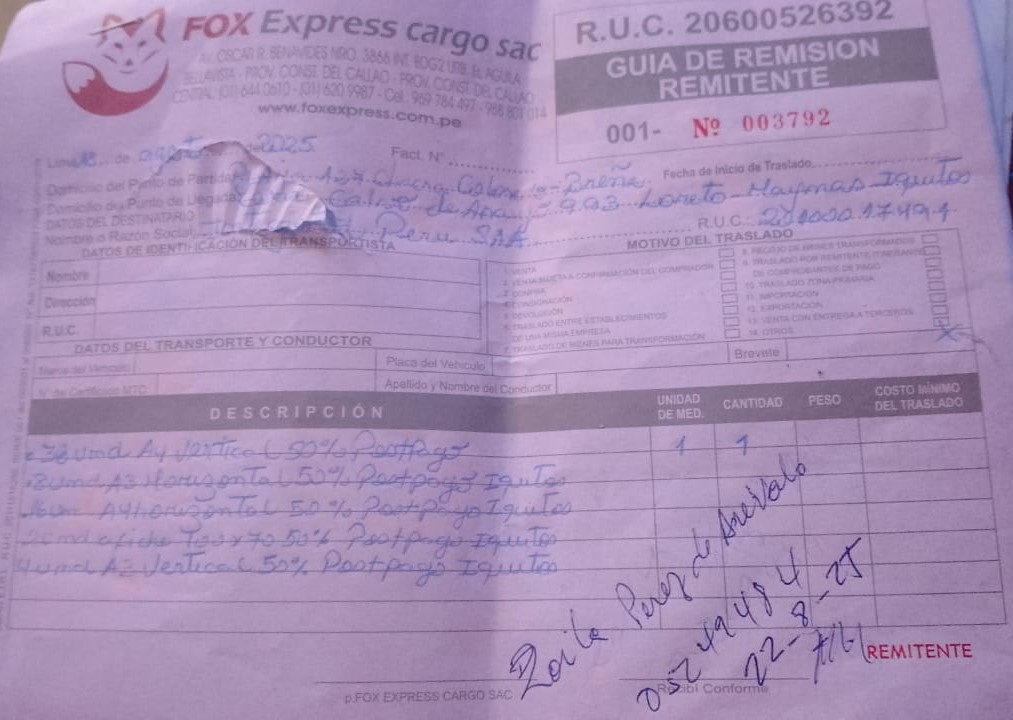 FOX Express cargo sac
AV. OSCAR R. BENAVIDES NRO. 3866 INT. BOG2 URB. EL AGUILA
BELLAVISTA - PROV. CONST. DEL CALLAO - PROV. CONST. DEL CALLAO
CENTRAL: (01) 644 0610 - (01) 620 9987 - Cel. 969 784 497 - 988 801 014
www.foxexpress.com.pe
R.U.C. 20600526392
GUIA DE REMISION
REMITENTE
001- Nº 003792
Lima, de 2025
Fact. Nº
Fecha de Inicio de Traslado
Domicilio del Punto de Partida 427 Chacra Colorada - Breña
Domicilio del Punto de Llegada Calvo de Araujo 993 Loreto - Maynas - Iquitos
DATOS DEL DESTINATARIO
Nombre o Razón Social Peru SAA R.U.C.:
DATOS DE IDENTIFICACIÓN DEL TRANSPORTISTA
Nombre
Dirección
R.U.C.
MOTIVO DEL TRASLADO
1. VENTA
2. VENTA SUJETA A CONFIRMACIÓN DEL COMPRADOR
3. COMPRA
4. CONSIGNACIÓN
5. DEVOLUCIÓN
6. TRASLADO ENTRE ESTABLECIMIENTOS
DE UNA MISMA EMPRESA
7. TRASLADO DE BIENES PARA TRANSFORMACIÓN
8. RECOJO DE BIENES TRANSFORMADOS
9. TRASLADO POR REMITENTE ITINERANTE
DE COMPROBANTES DE PAGO
10. TRASLADO ZONA PRIMARIA
11. IMPORTACION
12. EXPORTACION
13. VENTA CON ENTREGA A TERCEROS
14. OTROS X
DATOS DEL TRANSPORTE Y CONDUCTOR
Marca del Vehiculo
Placa del Vehiculo
Brevete
N° de Certificado MTC
Apellido y Nombre del Conductor
DESCRIPCIÓN UNIDAD DE MED. CANTIDAD PESO COSTO MÍNIMO DEL TRASLADO
und A4 Vertical 50% PostPago 1 1
und A3 Horizontal 50% Postpago Iquitos
A4 horizontal 50% Postpago Iquitos
und afiche 100x70 50% Postpago Iquitos
4 und A3 Vertical 50% Postpago Iquitos
Zoila Perez de Arevalo
05249484
22-8-25
REMITENTE
p.FOX EXPRESS CARGO SAC
Recibi Conforme